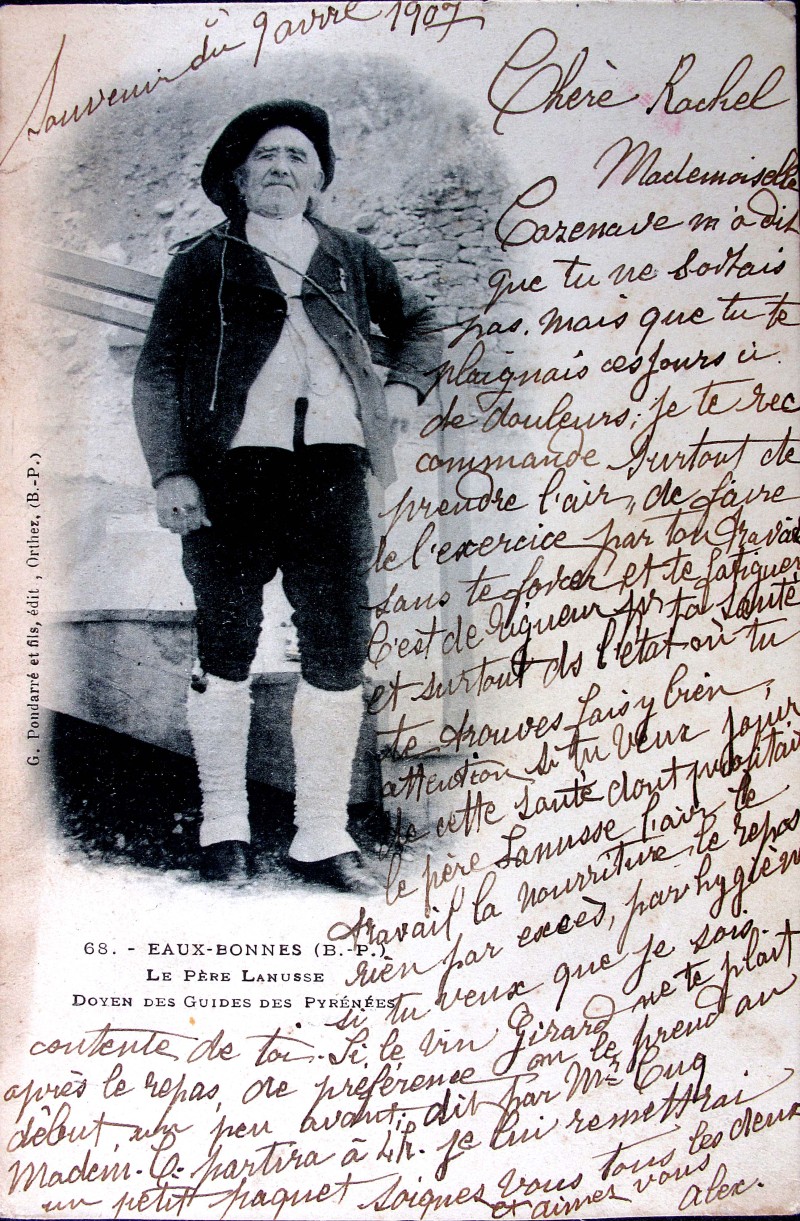 Souvenir du 9 avril 1907
Chère Rachel
Mademoiselle
Cazenave m'a dit
que tu ne sortais
pas. mais que tu te
plaignais ces jours ci
de douleurs; je te rec
commande surtout de
prendre l'air, de faire
de l'exercice par ton travail
sans te forcer et te fatiguer
C'est de rigueur pr ta santé
et surtout ds l'état où tu
te trouves fais y bien
attention si tu veux jouir
de cette santé dont profitait
le père Lanusse l'air le
travail la nourriture le repos
rien par excès, par hygiène
si tu veux que je sois
contente de toi. Si le vin Girard ne te plait
après le repas, de préférence on le prend au
début, un peu avant, dit par Mr Cug
Madem. C. partira à 4h. je lui remettrai
un petit paquet soignes vous tous les deux
et aimez vous
Alex.
G. Pondarré et fils, édit , Orthez, (B.-P.)
68. - EAUX-BONNES (B.-P.)
LE PÈRE LANUSSE
DOYEN DES GUIDES DES PYRÉNÉES